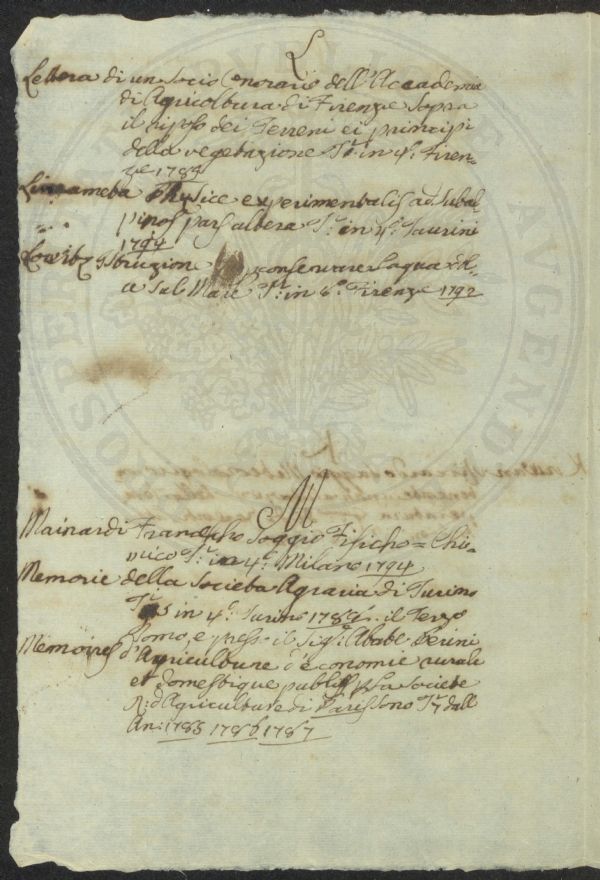 L
Lettera di un Socio Onorario dell'Accademia
di Agricoltura di Firenze Sopra
il riposo dei Terreni ei principi
della vegetazione T. 1 in 4.º Firen-
ze 1784
Lineamenta Physice experimentalis ad Subal-
pinos pars altera T. 1 in 4.º Taurini
1794
Lowitz Istruzione conservare l'aqua
a Sul Mare T. 1 in 8.º Firenze 1792
M
Mainardi Francescho Soggio Fisicho = Chi-
mico T. 1 in 4.º Milano 1794
Memorie della Societa Agraria di Turino
in 4.º Turino 1788 il Terzo
Tomo, e presso il Sig.r Abate Peuini
Memoires d'Agriculture d'economie rurale
et domestique publiè La Societe
R: d'Agriculture di Paris Sono T. 7 dall
An: 1785 1786 1787